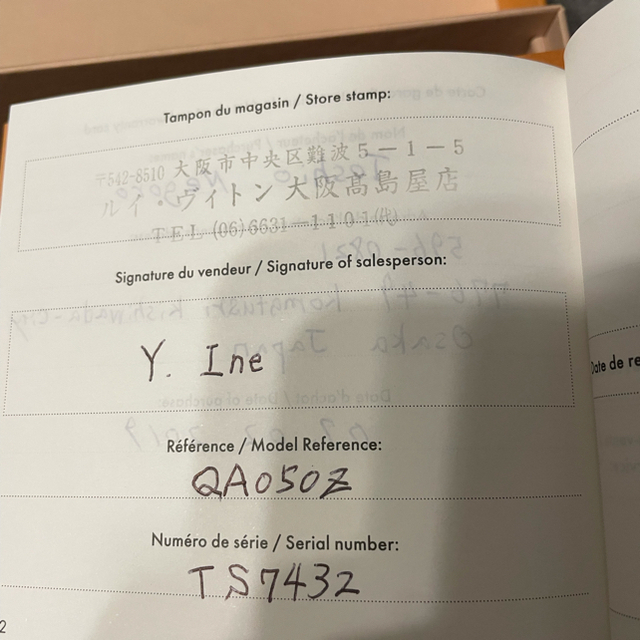 Tampon du magasin / Store stamp:
〒542-8510 大阪市中央区難波5-1-5
ルイ・ヴィトン 大阪髙島屋店
TEL (06)6631-1101(代)
Signature du vendeur / Signature of salesperson:
Y. Ine
Référence / Model Reference:
QA050Z
Numéro de série / Serial number:
TS7432
2
Date de re